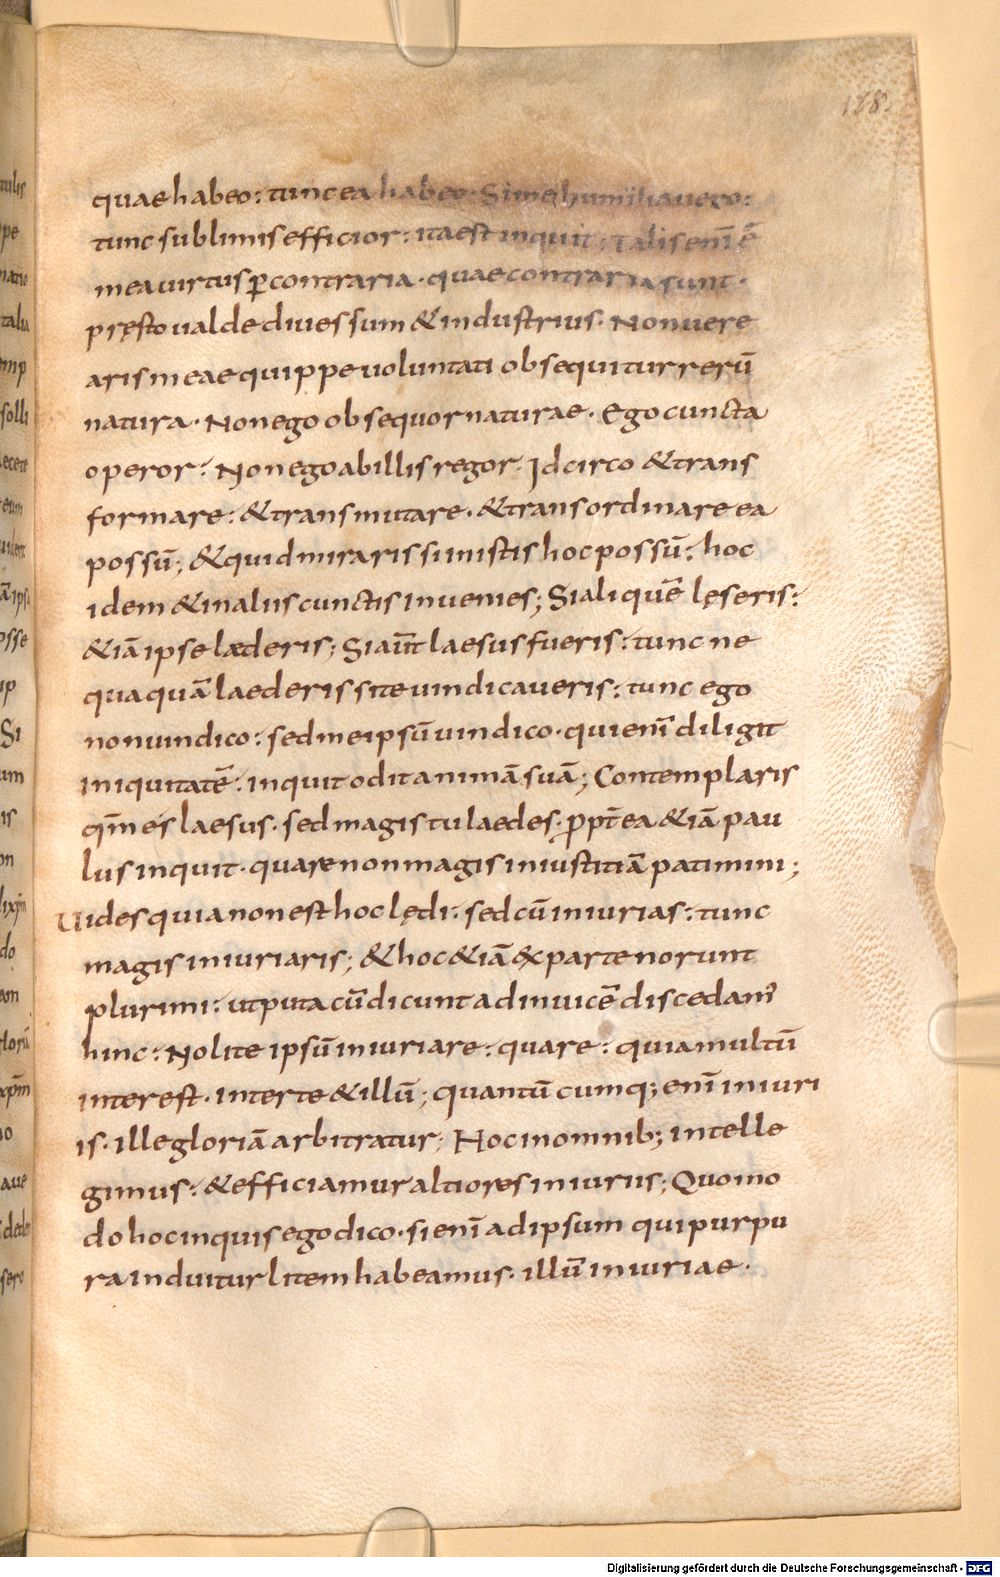 128.
quae habeo: tunc ea habeo. Si me humiliavero:
tunc sublimis efficior: ita est inquit; Talis eni ē
mea uirtus ꝑ contraria. quae contraria sunt.
pręsto ualde diues sum & industrius. Non uere
aris meae quippe uoluntati obsequitur rerū
natura. Non ego obsequor naturae. Ego cuncta
operor: Non ego ab illis regor. Idcirco & trans
formare: & transmutare. & transordinare ea
possū; & quid miraris si in istis hoc possū: hoc
idem & in aliis cunctis inuenies; Si aliquē lęseris:
& iā ipse laederis; Si aut̄ laesus fueris: tunc ne
quaquā laederis si te uindicaueris: tunc ego
non uindico: sed me ipsū uindico. qui eni diligit
iniquitatē: inquit odit animā suā; Contemplaris
qm̄ es laesus. sed magis tu laedes. ꝓpt̄ea & iā pau
lus inquit. quare non magis iniustitiā patimini;
Uides quia non est hoc lędi: sed cū iniurias: tunc
magis iniuriaris; & hoc & iā ex parte norunt
plurimi: ut puta cū dicunt ad inuicē discedam'
hinc: Nolite ipsū iniuriare: quare: quia multū
interest. inter te & illū; quantū cumq; eni iniuri
is. ille gloriā arbitratur; Hoc in omnib; intelle
gimus: & efficiamur altiores iniuriis; Quomo
do hoc inquis ego dico. si eni ad ipsum qui purpu
ra induitur litem habeamus. illū iniuriae.
Digitalisierung gefördert durch die Deutsche Forschungsgemeinschaft - DFG